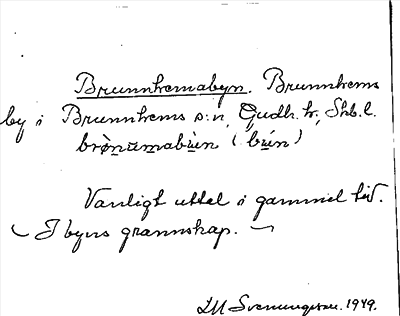 Brunnhemabyn. Brunnhems
by i Brunnhems s:n, Gudh. hr, Skb. l.
brònamabùen (bún)
Vanligt uttal i gammel tid.
I byns grannskap.
LM Svenungsson. 1949.